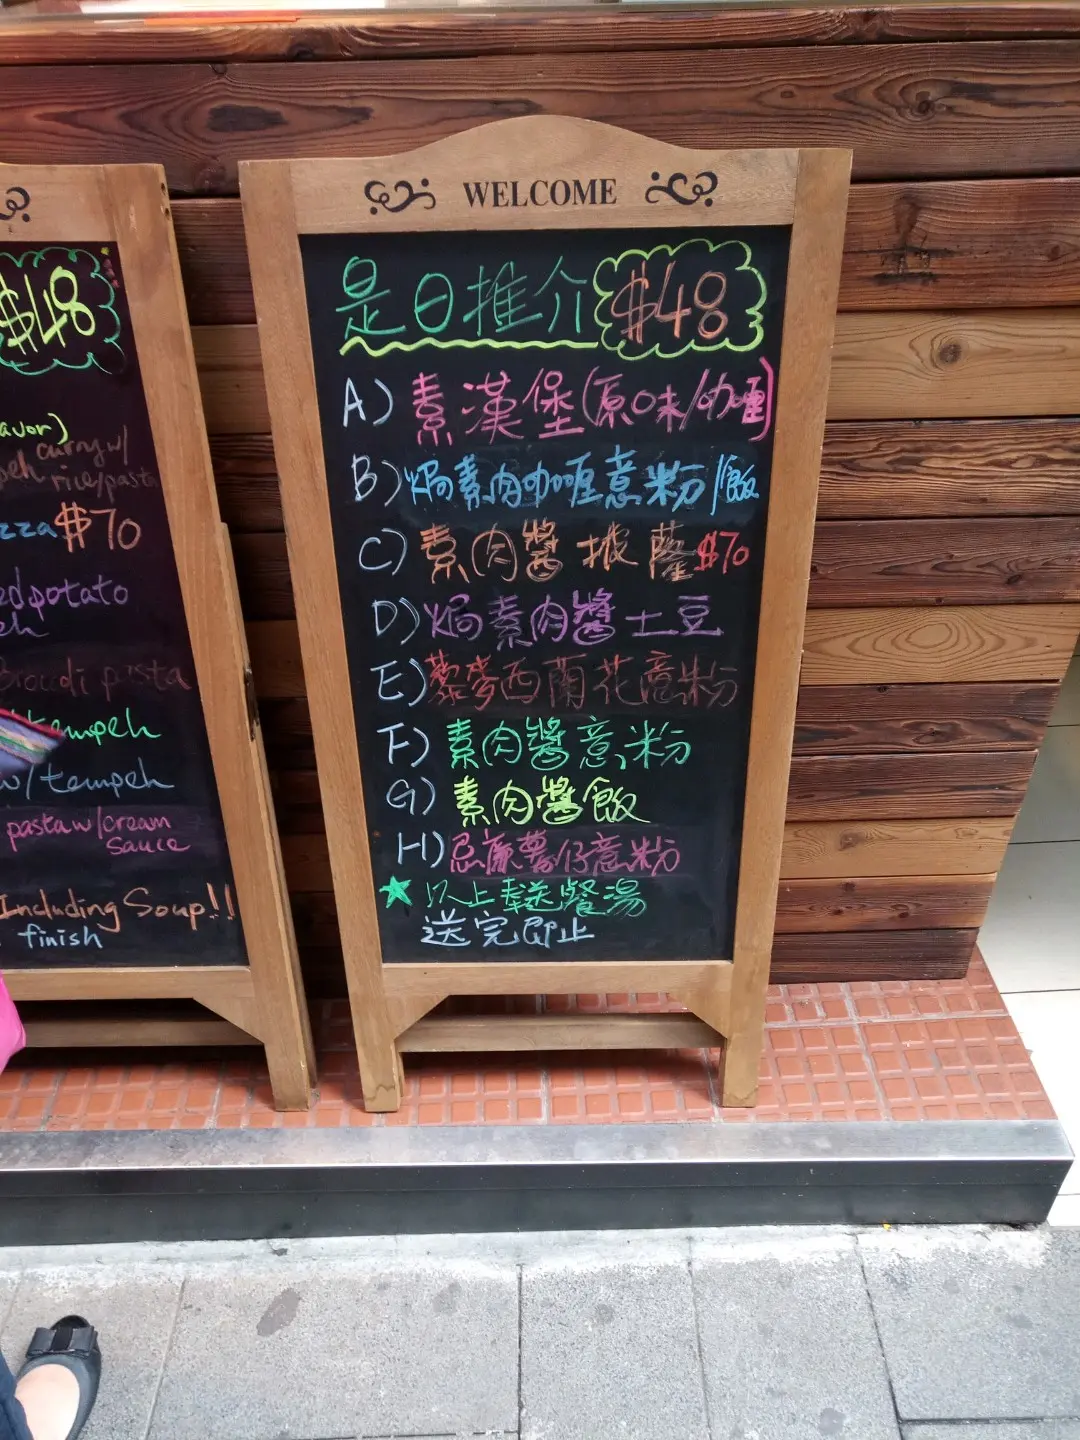 $48
avor)
curry w/
peh rice/pasta
zza $70
ed potato
eh
Broudi pasta
tempeh
w/ tempeh
pasta w/cream
sauce
Including Soup!!
finish
WELCOME
是日推介 $48
A) 素漢堡(原味/咖喱)
B) 焗素肉咖喱意粉/飯
C) 素肉醬披薩 $70
D) 焗素肉醬土豆
E) 藜麥西蘭花意粉
F) 素肉醬意粉
G) 素肉醬飯
H) 忌廉薯仔意粉
★ 以上奉送餐湯
送完即止